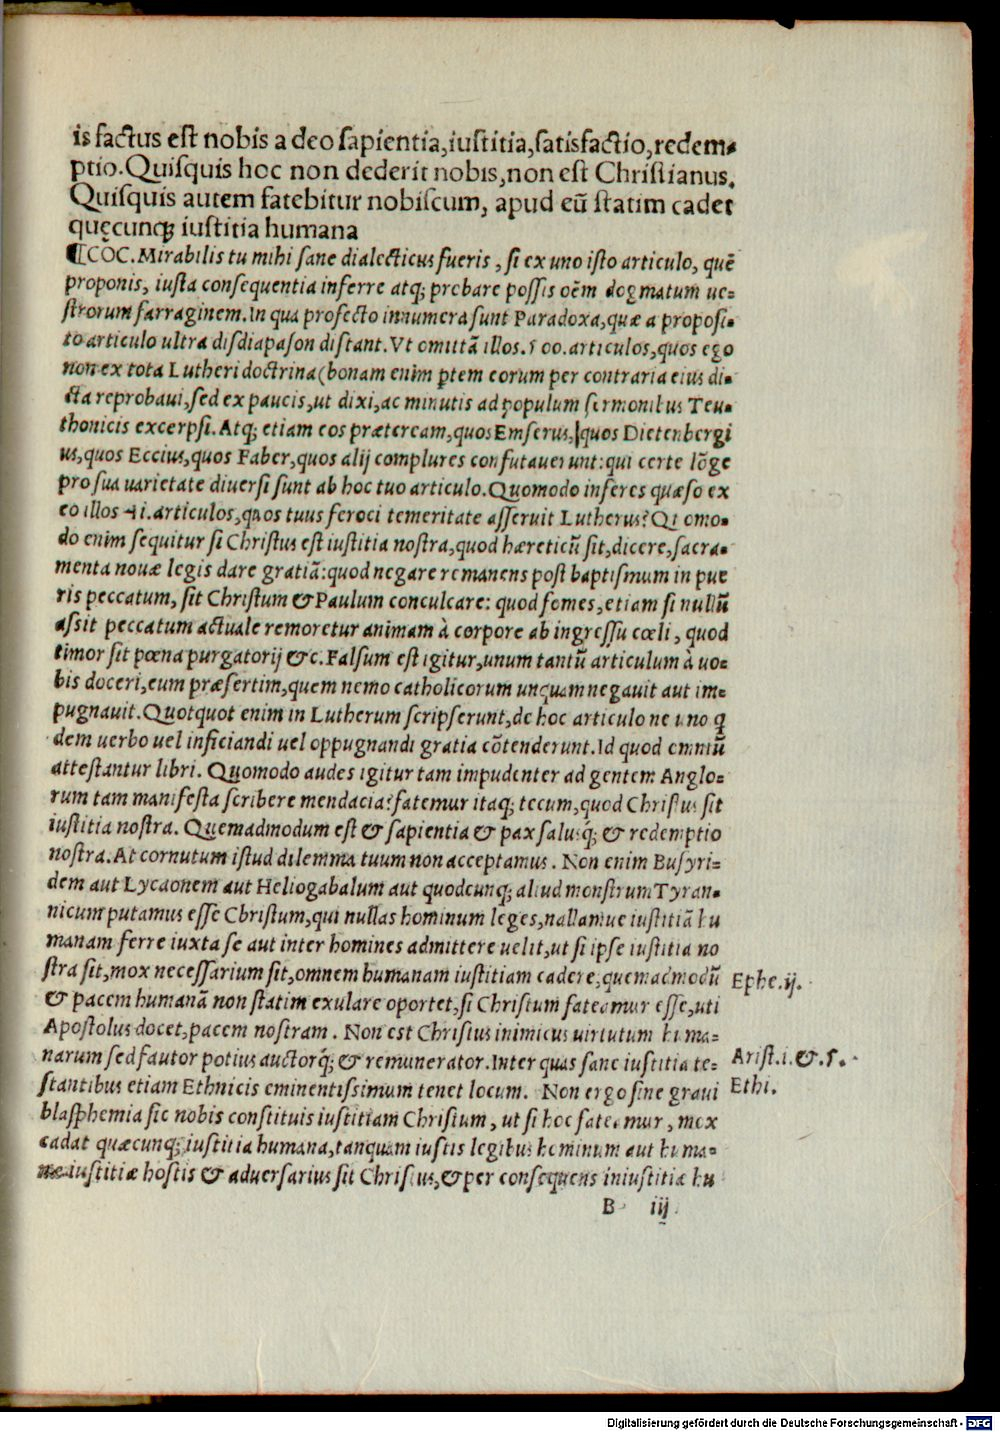 is factus est nobis a deo sapientia,iustitia,satisfactio,redem-
ptio.Quisquis hoc non dederit nobis,non est Christianus.
Quisquis autem fatebitur nobiscum, apud eũ statim cadet
quęcunqꝫ iustitia humana
¶COC.Mirabilis tu mihi sane dialecticus fueris, si ex uno isto articulo, quẽ
proponis, iusta consequentia inferre atqꝫ probare possis oẽm dogmatum ue=
strorum farraginem.In qua profecto innumera sunt Paradoxa,quæ a proposi-
to articulo ultra disdiapason distant.Vt omittã illos.500.articulos,quos ego
non ex tota Lutheri doctrina(bonam enim ꝑtem eorum per contraria eius di-
cta reprobaui,sed ex paucis,ut dixi,ac minutis ad populum sermonibus Teu-
thonicis excerpsi.Atqꝫ etiam eos præteream,quos Emserus,quos Dietenbergi
us,quos Eccius,quos Faber,quos alij complures confutauerunt:qui certe lõge
pro sua uarietate diuersi sunt ab hoc tuo articulo.Quomodo inferes quæso ex
eo illos 41.articulos,quos tuus feroci temeritate asseruit Lutherus?Quomo-
do enim sequitur si Christus est iustitia nostra,quod hæreticũ sit,dicere,sacra-
menta nouæ legis dare gratiã:quod negare remanens post baptismum in pue
ris peccatum, sit Christum & Paulum conculcare: quod fomes,etiam si nullũ
assit peccatum actuale remoretur animam à corpore ab ingressu cœli, quod
timor sit pœna purgatorij &c.Falsum est igitur,unum tantũ articulum à uo-
bis doceri,eum præsertim,quem nemo catholicorum unquam negauit aut im-
pugnauit.Quotquot enim in Lutherum scripserunt,de hoc articulo ne uno q
dem uerbo uel inficiandi uel oppugnandi gratia cõtenderunt.Id quod omniũ
attestantur libri. Quomodo audes igitur tam impudenter ad gentem Anglo=
rum tam manifesta scribere mendacia?fatemur itaqꝫ tecum,quod Christus sit
iustitia nostra. Quemadmodum est & sapientia & pax salusq́ꝫ & redemptio
nostra.At cornutum istud dilemma tuum non acceptamus. Non enim Busyri=
dem aut Lycaonem aut Heliogabalum aut quodcunqꝫ aliud monstrum Tyran-
nicum putamus esse Christum,qui nullas hominum leges,nullamue iustitiã hu
manam ferre iuxta se aut inter homines admittere uelit,ut si ipse iustitia no
stra sit,mox necessarium sit,omnem humanam iustitiam cadere,quemadmodũ
& pacem humanã non statim exulare oportet,si Christum fateamur esse,uti
Apostolus docet,pacem nostram. Non est Christus inimicus uirtutum huma=
narum sed fautor potius auctorq́ꝫ & remunerator.Inter quas sane iustitia te=
stantibus etiam Ethnicis eminentissimum tenet locum. Non ergo sine graui
blasphemia sic nobis constituis iustitiam Christum, ut si hoc fatemur, mox
cadat quæcunqꝫ iustitia humana,tanquam iustis legibus hominum aut huma=
næ iustitiæ hostis & aduersarius sit Christus,& per consequens iniustitiæ hu
B iij
Ephe.ij.
Arist.i.&.5.
Ethi.
Digitalisierung gefördert durch die Deutsche Forschungsgemeinschaft - DFG